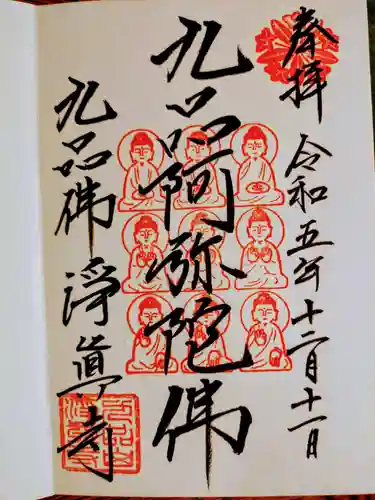 奉拝 令和五年十二月十一日
九品阿弥陀佛
九品佛 浄眞寺